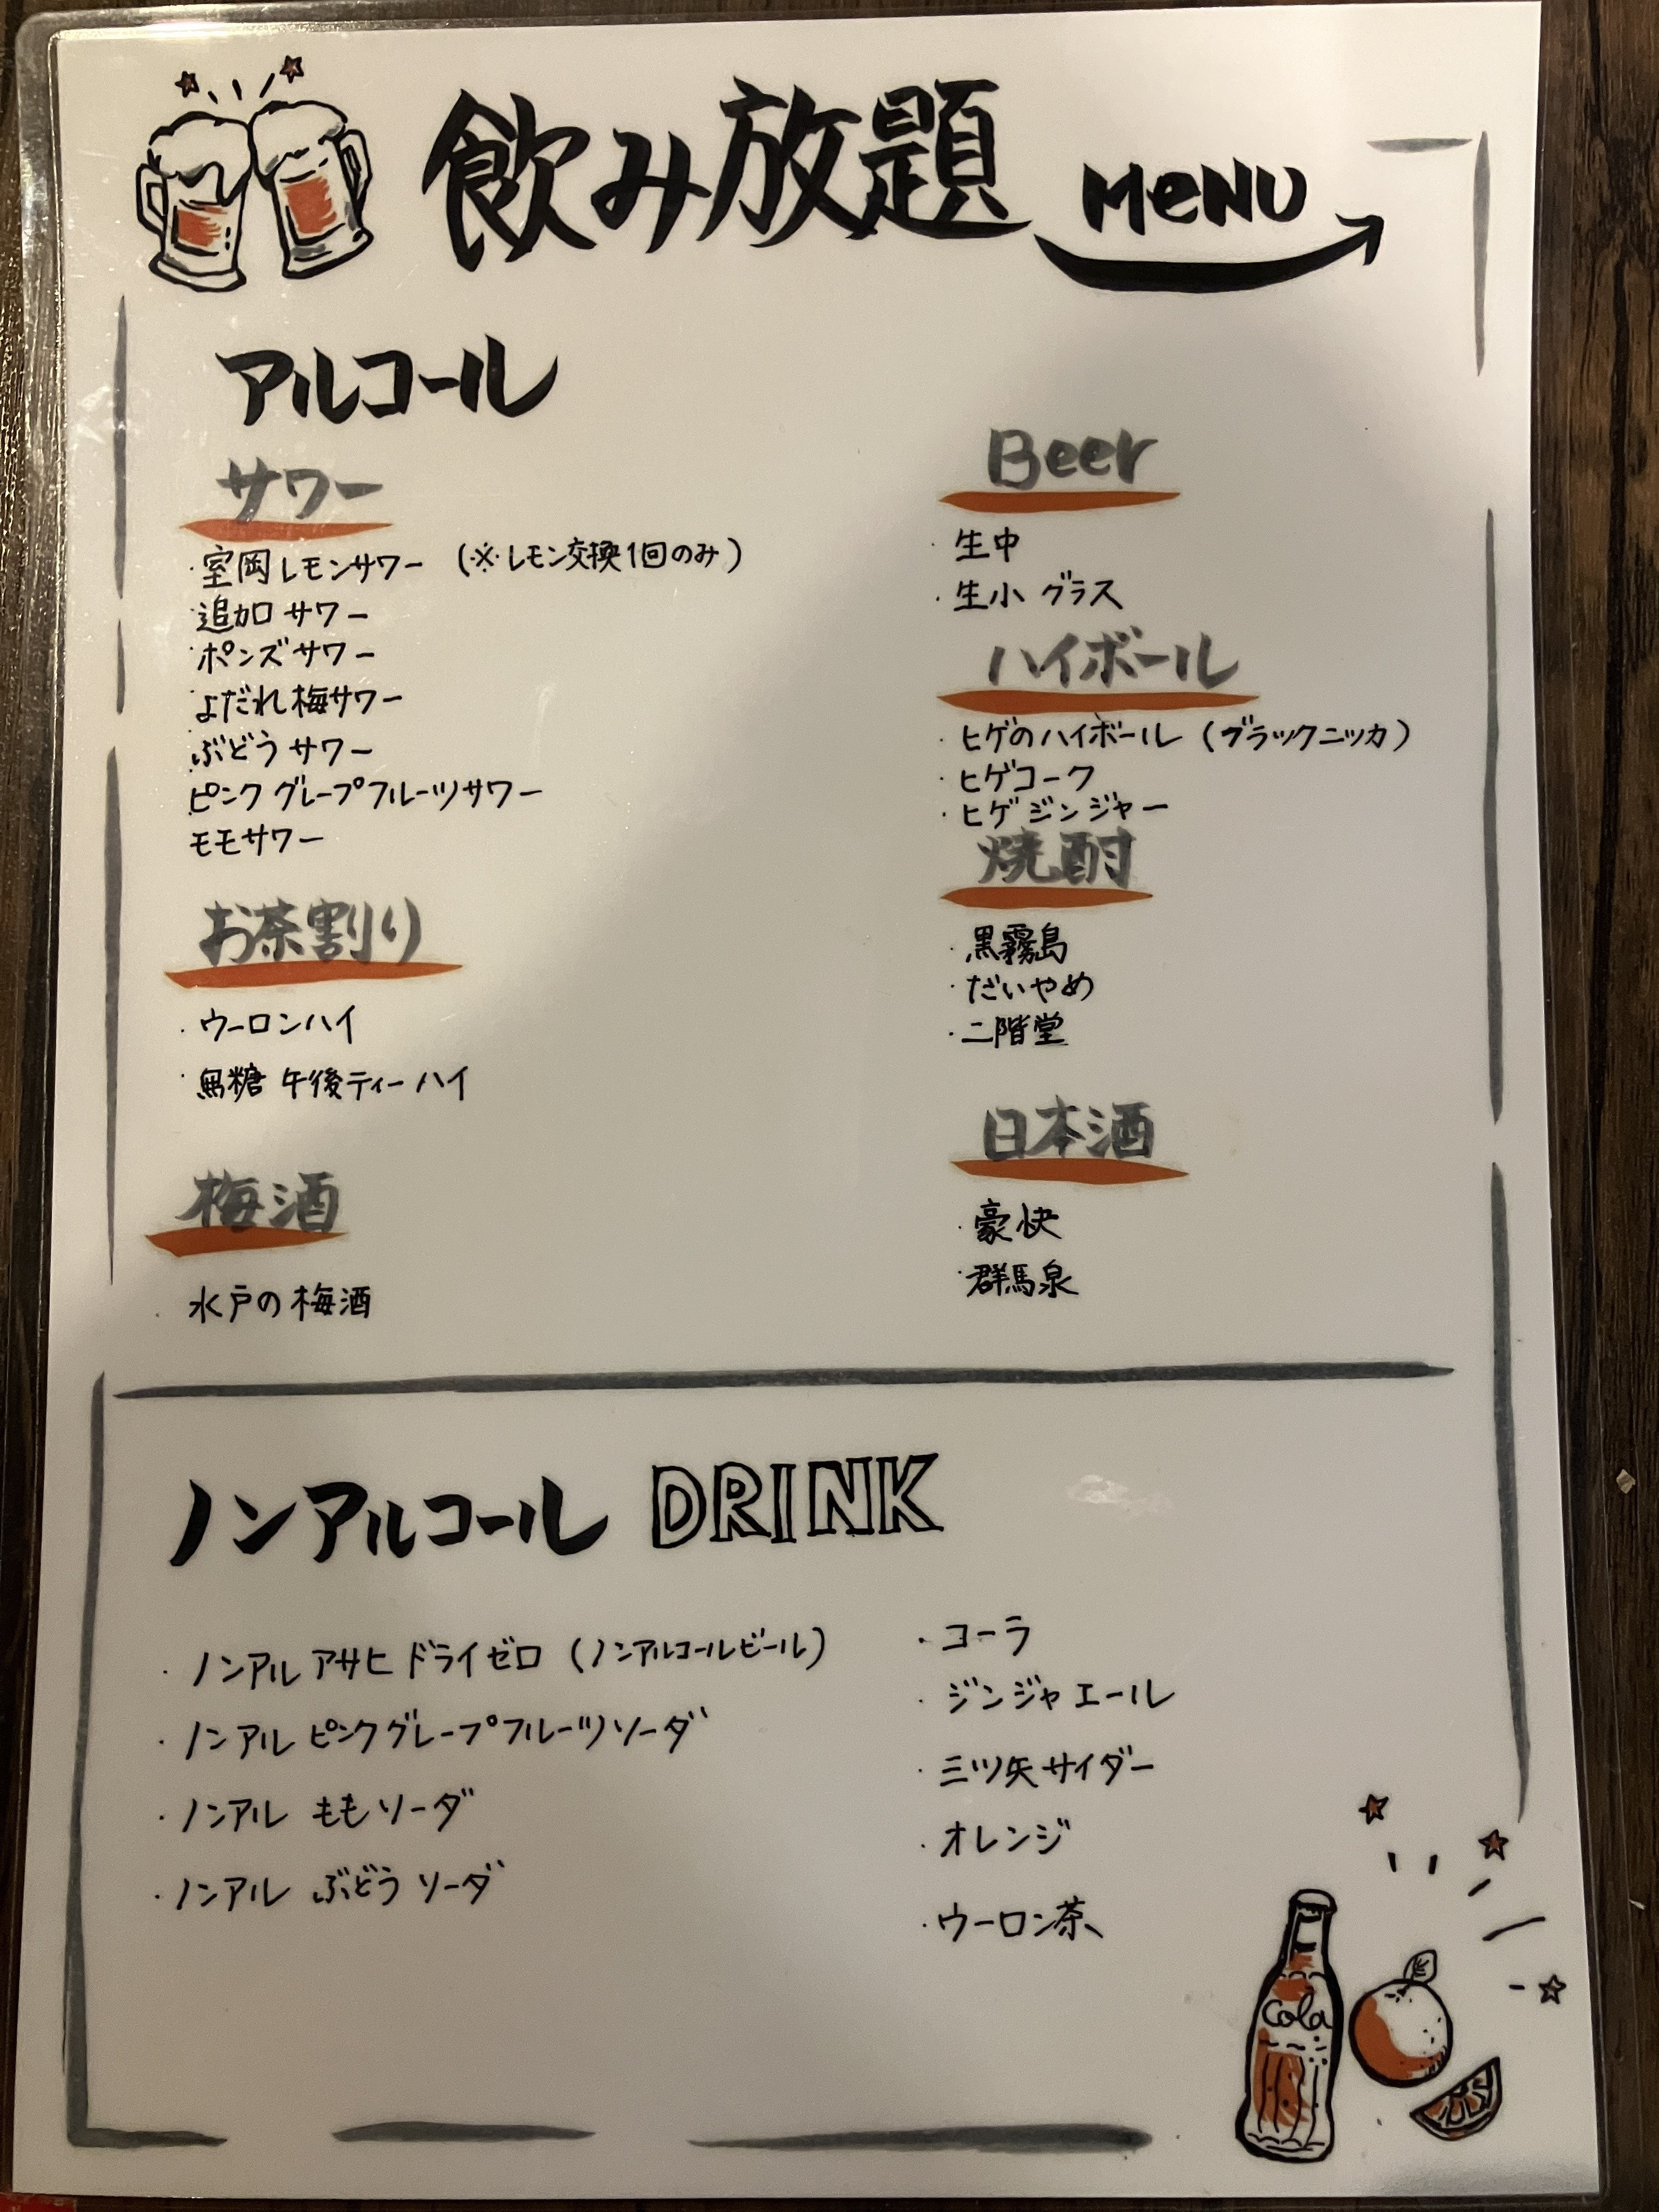 飲み放題 MeNU
アルコール
サワー
・室岡レモンサワー (※レモン交換1回のみ)
・追加サワー
・ポンズサワー
・よだれ梅サワー
・ぶどうサワー
・ピンクグレープフルーツサワー
・モモサワー
お茶割り
・ウーロンハイ
・無糖 午後ティーハイ
梅酒
・水戸の梅酒
Beer
・生中
・生小 グラス
ハイボール
・ヒゲのハイボール (ブラックニッカ)
・ヒゲコーク
・ヒゲジンジャー
焼酎
・黒霧島
・だいやめ
・二階堂
日本酒
・豪快
・群馬泉
ノンアルコール DRINK
・ノンアル アサヒ ドライゼロ (ノンアルコールビール)
・ノンアル ピンクグレープフルーツソーダ
・ノンアル ももソーダ
・ノンアル ぶどうソーダ
・コーラ
・ジンジャエール
・三ツ矢サイダー
・オレンジ
・ウーロン茶
Cola